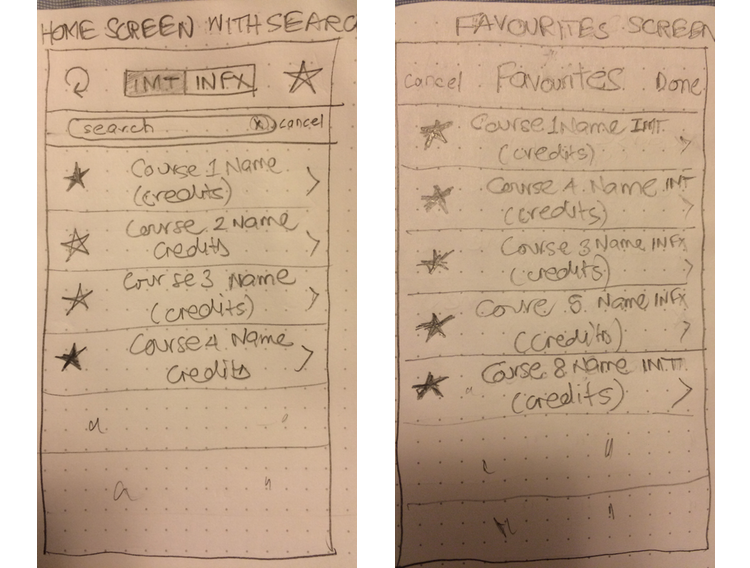 HOME SCREEN WITH SEARC
IMT INFX
search x cancel
Course 1 Name
(credits)
Course 2 Name
Credits
Course 3 Name
(credits)
Course 4 Name
Credits
FAVOURITES SCREEN
Cancel Favourites Done
Course 1 Name IMT
(credits)
Course 4 Name IMT
(credits)
Course 3 Name INFX
(credits)
Coure 5 Name INFX
(credits)
Course 8 Name IMT
(credits)